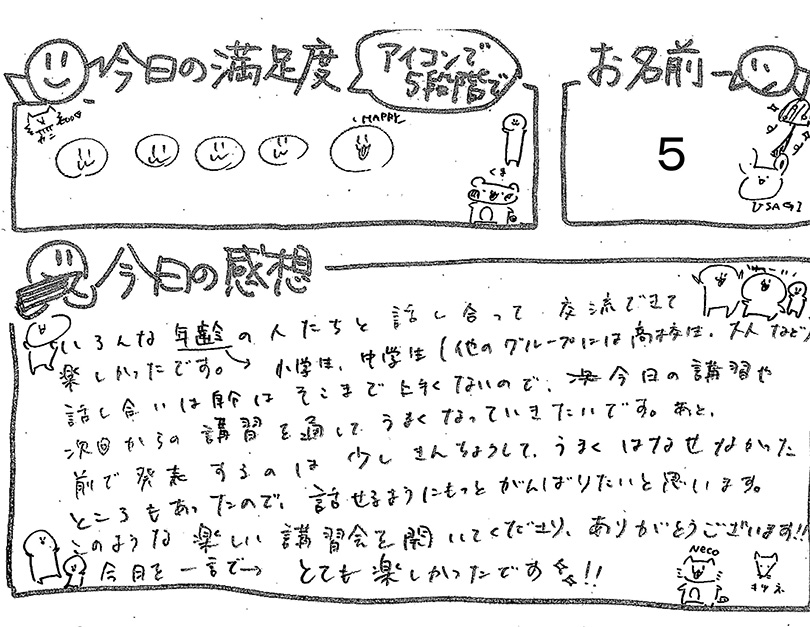 今日の満足度
アイコンで
5段階で
お名前
HAPPY
くま
5
USAGI
今日の感想
いろんな年齢の人たちと話し合って交流できて
楽しかったです。→小学生、中学生(他のグループには高校生、大人など)
話し合いは自分はそこまで上手くないので、今日の講習や
次回からの講習を通してうまくなっていきたいです。あと、
前で発表するのは少しきんちょうして、うまくはなせなかった
ところもあったので、話せるようにもっとがんばりたいと思います。
このような楽しい講習会を開いてくださり、ありがとうございます!!
今日を一言で→とても楽しかったです!!
Neco
キツネ